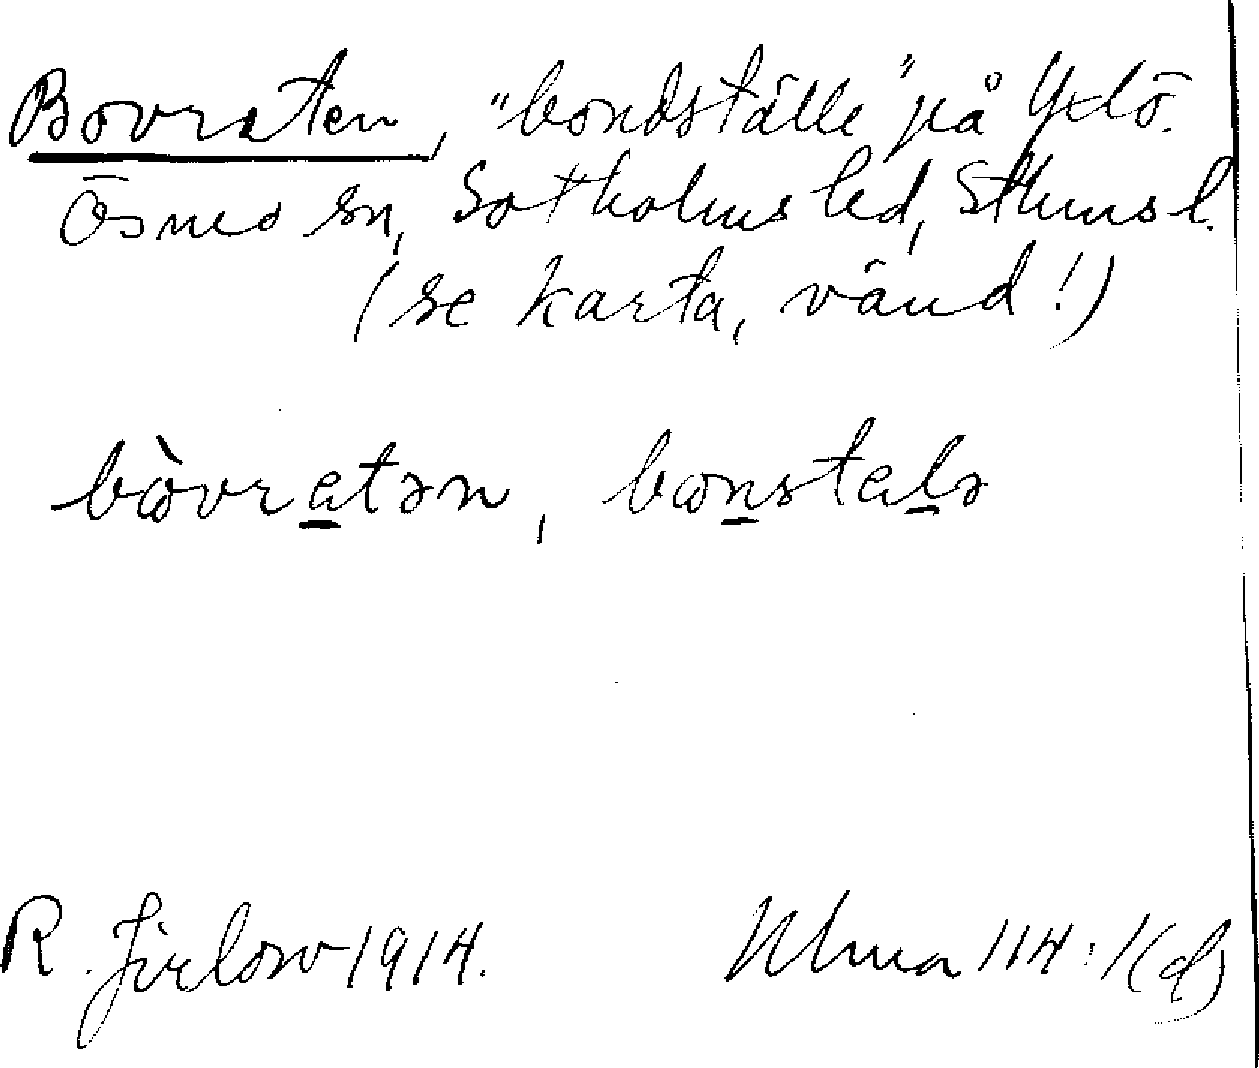 Bovraten, "bondställe" på Yxlö.
Ösmo sn, Sotholms hd, Sthms l.
(se karta, vänd!)
bòvratən, bωnstalə
R. Jirlow 1914. Ulma 114:1(d)